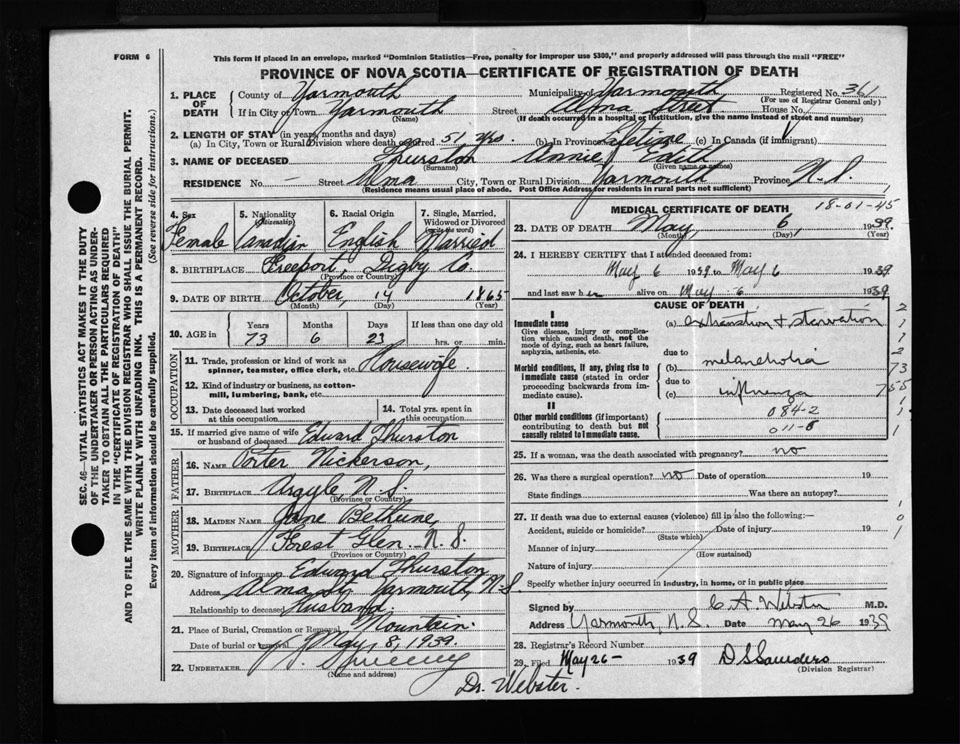 FORM 6
This form if placed in an envelope, marked "Dominion Statistics—Free, penalty for improper use $300," and properly addressed will pass through the mail "FREE"
PROVINCE OF NOVA SCOTIA—CERTIFICATE OF REGISTRATION OF DEATH
SEC. 46— VITAL STATISTICS ACT MAKES IT THE DUTY
OF THE UNDERTAKER OR PERSON ACTING AS UNDER-
TAKER TO OBTAIN ALL THE PARTICULARS REQUIRED
IN THE "CERTIFICATE OF REGISTRATION OF DEATH"
AND TO FILE THE SAME WITH THE DIVISION REGISTRAR WHO SHALL ISSUE THE BURIAL PERMIT.
WRITE PLAINLY WITH UNFADING INK. THIS IS A PERMANENT RECORD.
Every item of information should be carefully supplied. (See reverse side for instructions.)
1. PLACE OF DEATH County of Yarmouth Municipality of Yarmouth Registered No. 361
(For use of Registrar General only)
If in City or Town Yarmouth Street Alma Street House No.
(Name) (If death occurred in a hospital or institution, give the name instead of street and number)
2. LENGTH OF STAY (in years, months and days)
(a) In City, Town or Rural Division where death occurred 51 yrs. (b) In Province Lifetime (c) In Canada (if immigrant)
3. NAME OF DECEASED Thurston Annie Edith
(Surname) (Given name or names)
RESIDENCE No. — Street Alma City, Town or Rural Division Yarmouth Province N.S.
(Residence means usual place of abode. Post Office Address for residents in rural parts not sufficient)
4. Sex Female
5. Nationality (citizenship) Canadian
6. Racial Origin English
7. Single, Married, Widowed or Divorced (write the word) Married
8. BIRTHPLACE Freeport, Digby Co.
(Province or Country)
9. DATE OF BIRTH October, 14 1865
(Month) (Day) (Year)
10. AGE in Years 73 Months 6 Days 23 If less than one day old hrs. or min.
OCCUPATION
11. Trade, profession or kind of work as spinner, teamster, office clerk, etc. Housewife.
12. Kind of industry or business, as cotton-mill, lumbering, bank, etc.
13. Date deceased last worked at this occupation
14. Total yrs. spent in this occupation
15. If married give name of wife or husband of deceased Edward Thurston
FATHER
16. NAME Porter Nickerson,
17. BIRTHPLACE Argyle, N.S.
(Province or Country)
MOTHER
18. MAIDEN NAME Jane Bethune,
19. BIRTHPLACE Forest Glen. N.S.
(Province or Country)
20. Signature of informant Edward Thurston
Address Alma St. Yarmouth, N.S.
Relationship to deceased Husband.
21. Place of Burial, Cremation or Removal Mountain.
Date of burial or removal May, 8, 1939.
22. UNDERTAKER Sweeny
(Name and address)
Dr. Webster.
MEDICAL CERTIFICATE OF DEATH 18-01-45
23. DATE OF DEATH May, 6, 1939.
(Month) (Day) (Year)
24. I HEREBY CERTIFY that I attended deceased from:
May 6 1939 to May 6 1939
and last saw her alive on May 6 1939
CAUSE OF DEATH
I
Immediate cause
Give disease, injury or complication which caused death, not the mode of dying, such as heart failure, asphyxia, asthenia, etc.
(a) exhaustion & starvation
due to
Morbid conditions, if any, giving rise to immediate cause (stated in order proceeding backwards from immediate cause).
(b) melancholia
due to
(c) influenza
II
Other morbid conditions (if important) contributing to death but not causally related to I immediate cause.
084-2
011-8
25. If a woman, was the death associated with pregnancy? no
26. Was there a surgical operation? no Date of operation 19
State findings Was there an autopsy?
27. If death was due to external causes (violence) fill in also the following:—
Accident, suicide or homicide? Date of injury 19
(State which)
Manner of injury
(How sustained)
Nature of injury
Specify whether injury occurred in industry, in home, or in public place
Signed by C A Webster M.D.
Address Yarmouth, N.S. Date May 26 1939
28. Registrar's Record Number
29. Filed May 26- 1939 D S Saunders
(Division Registrar)